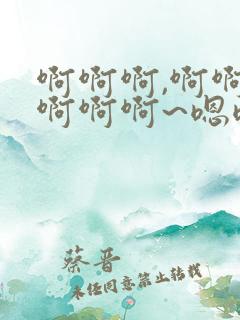 啊啊啊,啊啊
啊啊啊~嗯
蔡晋
未经同意禁止转载